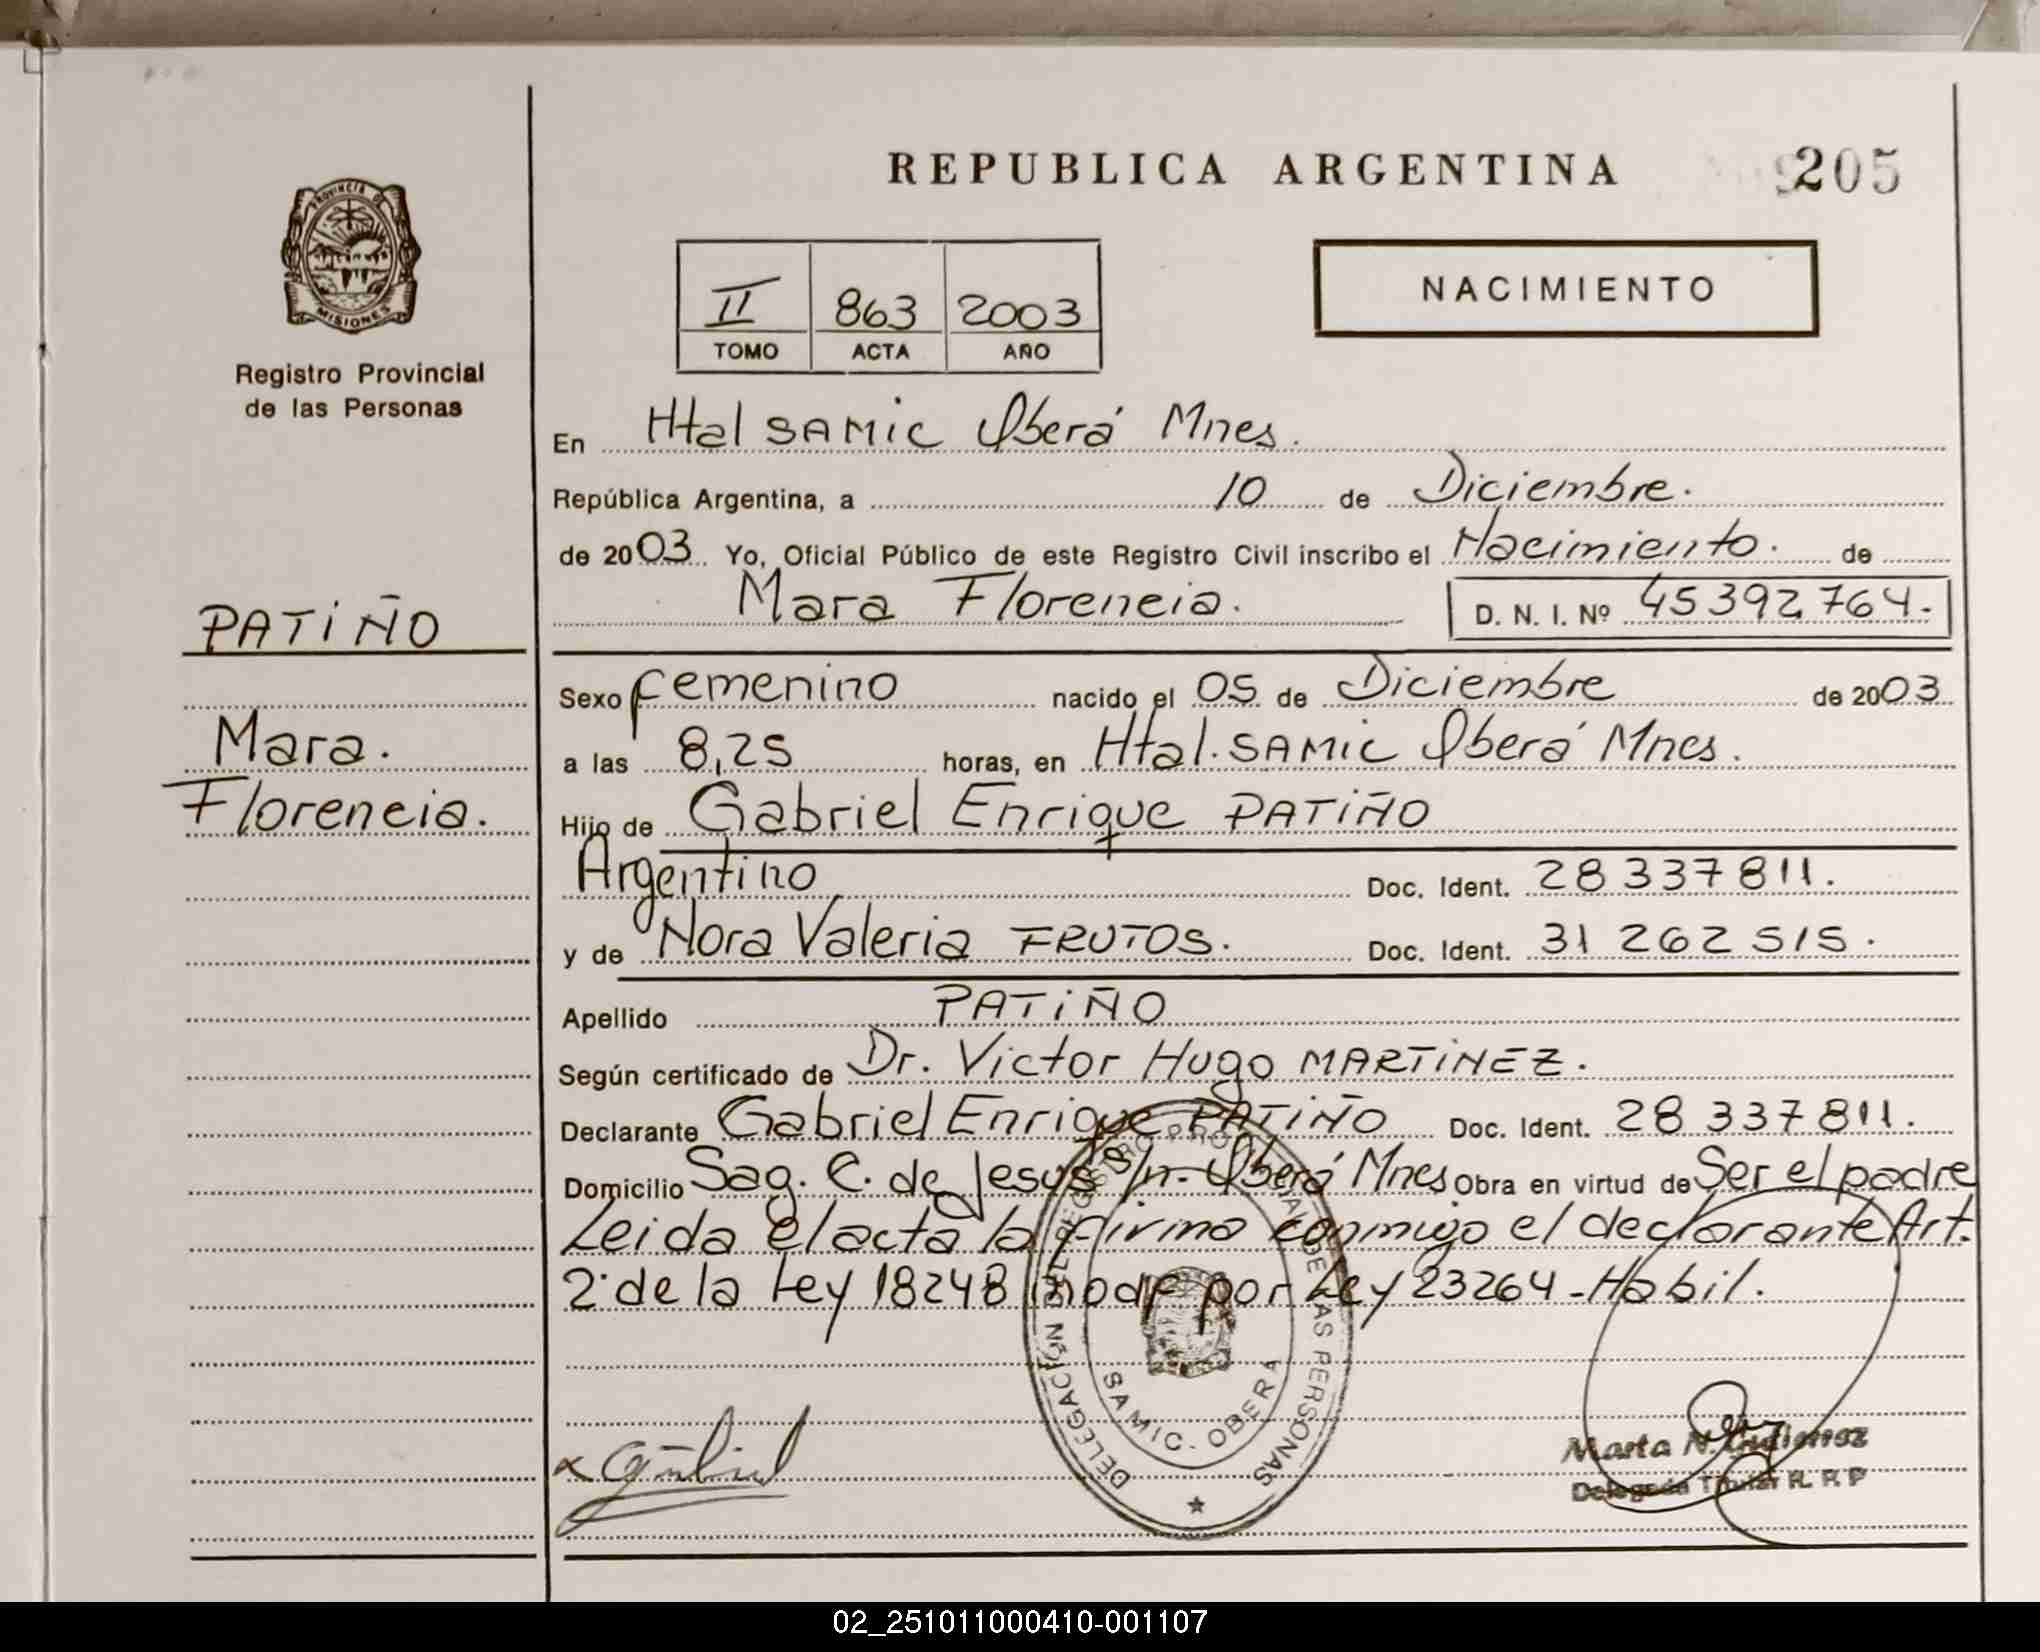 REPUBLICA ARGENTINA 205
PROVINCIA DE
MISIONES
Registro Provincial
de las Personas
II 863 2003
TOMO ACTA AÑO
NACIMIENTO
En Htal SAMIC Oberá Mnes.
República Argentina, a 10 de Diciembre.
de 2003. Yo, Oficial Público de este Registro Civil inscribo el Nacimiento. de
Mara Florencia. D. N. I. Nº 45392764.
PATIÑO
Mara.
Florencia.
Sexo femenino nacido el 05 de Diciembre de 2003
a las 8,25 horas, en Htal. SAMIC Oberá Mnes.
Hijo de Gabriel Enrique PATIÑO
Argentino Doc. Ident. 28 337 811.
y de Nora Valeria FRUTOS. Doc. Ident. 31 262 515.
Apellido PATIÑO
Según certificado de Dr. Victor Hugo MARTINEZ.
Declarante Gabriel Enrique PATIÑO Doc. Ident. 28 337 811.
Domicilio Sag. C. de Jesus s/n. Oberá Mnes Obra en virtud de Ser el padre
Leida el acta la firma conmigo el declarante Art.
2° de la Ley 18248 modf por Ley 23264 - Habil.
DELEGACIÓN DEL REGISTRO PROVINCIAL DE LAS PERSONAS
SAMIC. OBERA
Marta N. Gutierrez
Delegada Titular R. P. P
02_251011000410-001107